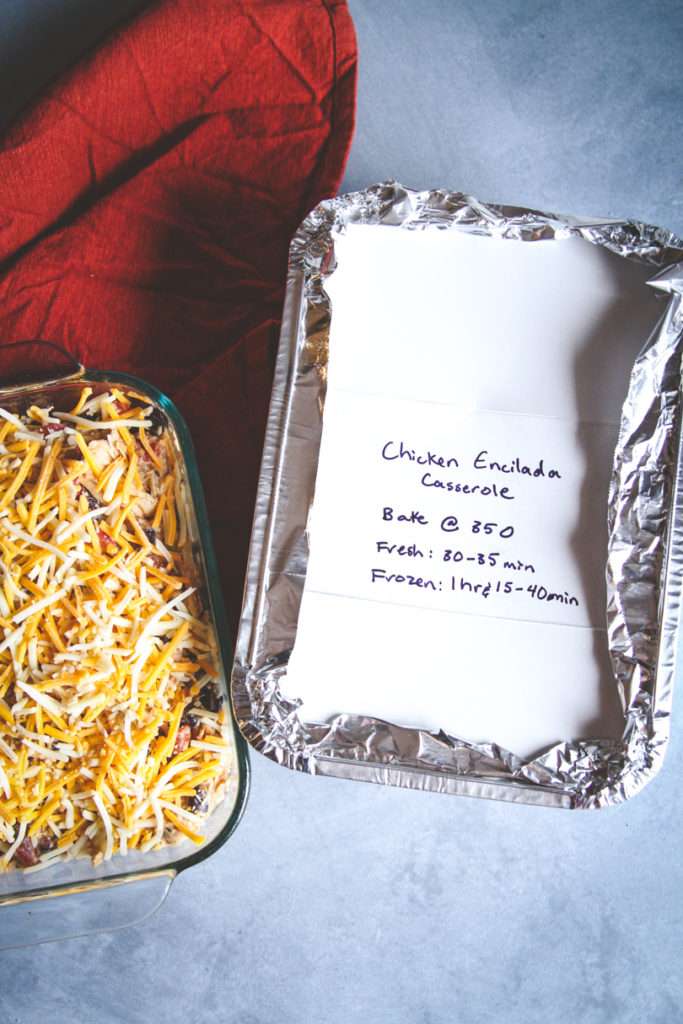 Chicken Encilada
Casserole
Bake @ 350
Fresh: 30-35 min
Frozen: 1hr & 15-40min